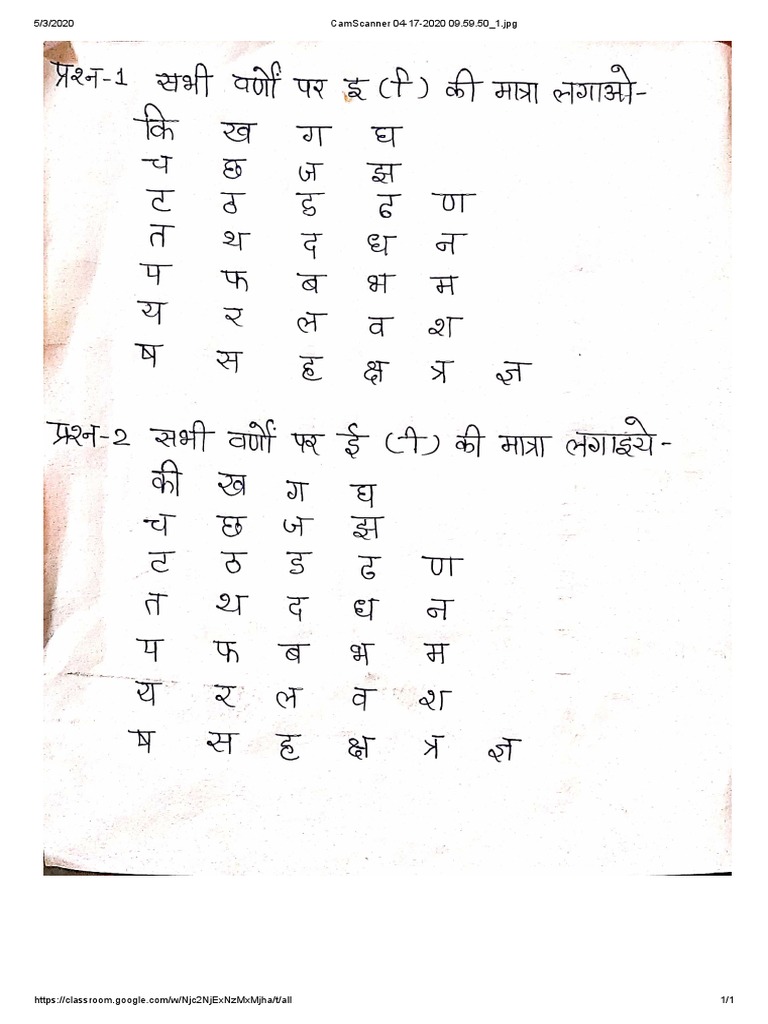 5/3/2020 CamScanner 04-17-2020 09.59.50_1.jpg
प्रश्न-1 सभी वर्णों पर इ (ि) की मात्रा लगाओ-
कि ख ग घ
च छ ज झ
ट ठ ड ढ ण
त थ द ध न
प फ ब भ म
य र ल व श
ष स ह क्ष त्र ज्ञ
प्रश्न-2 सभी वर्णों पर ई (ी) की मात्रा लगाइये-
की ख ग घ
च छ ज झ
ट ठ ड ढ ण
त थ द ध न
प फ ब भ म
य र ल व श
ष स ह क्ष त्र ज्ञ
https://classroom.google.com/w/Njc2NjExNzMxMjha/t/all 1/1